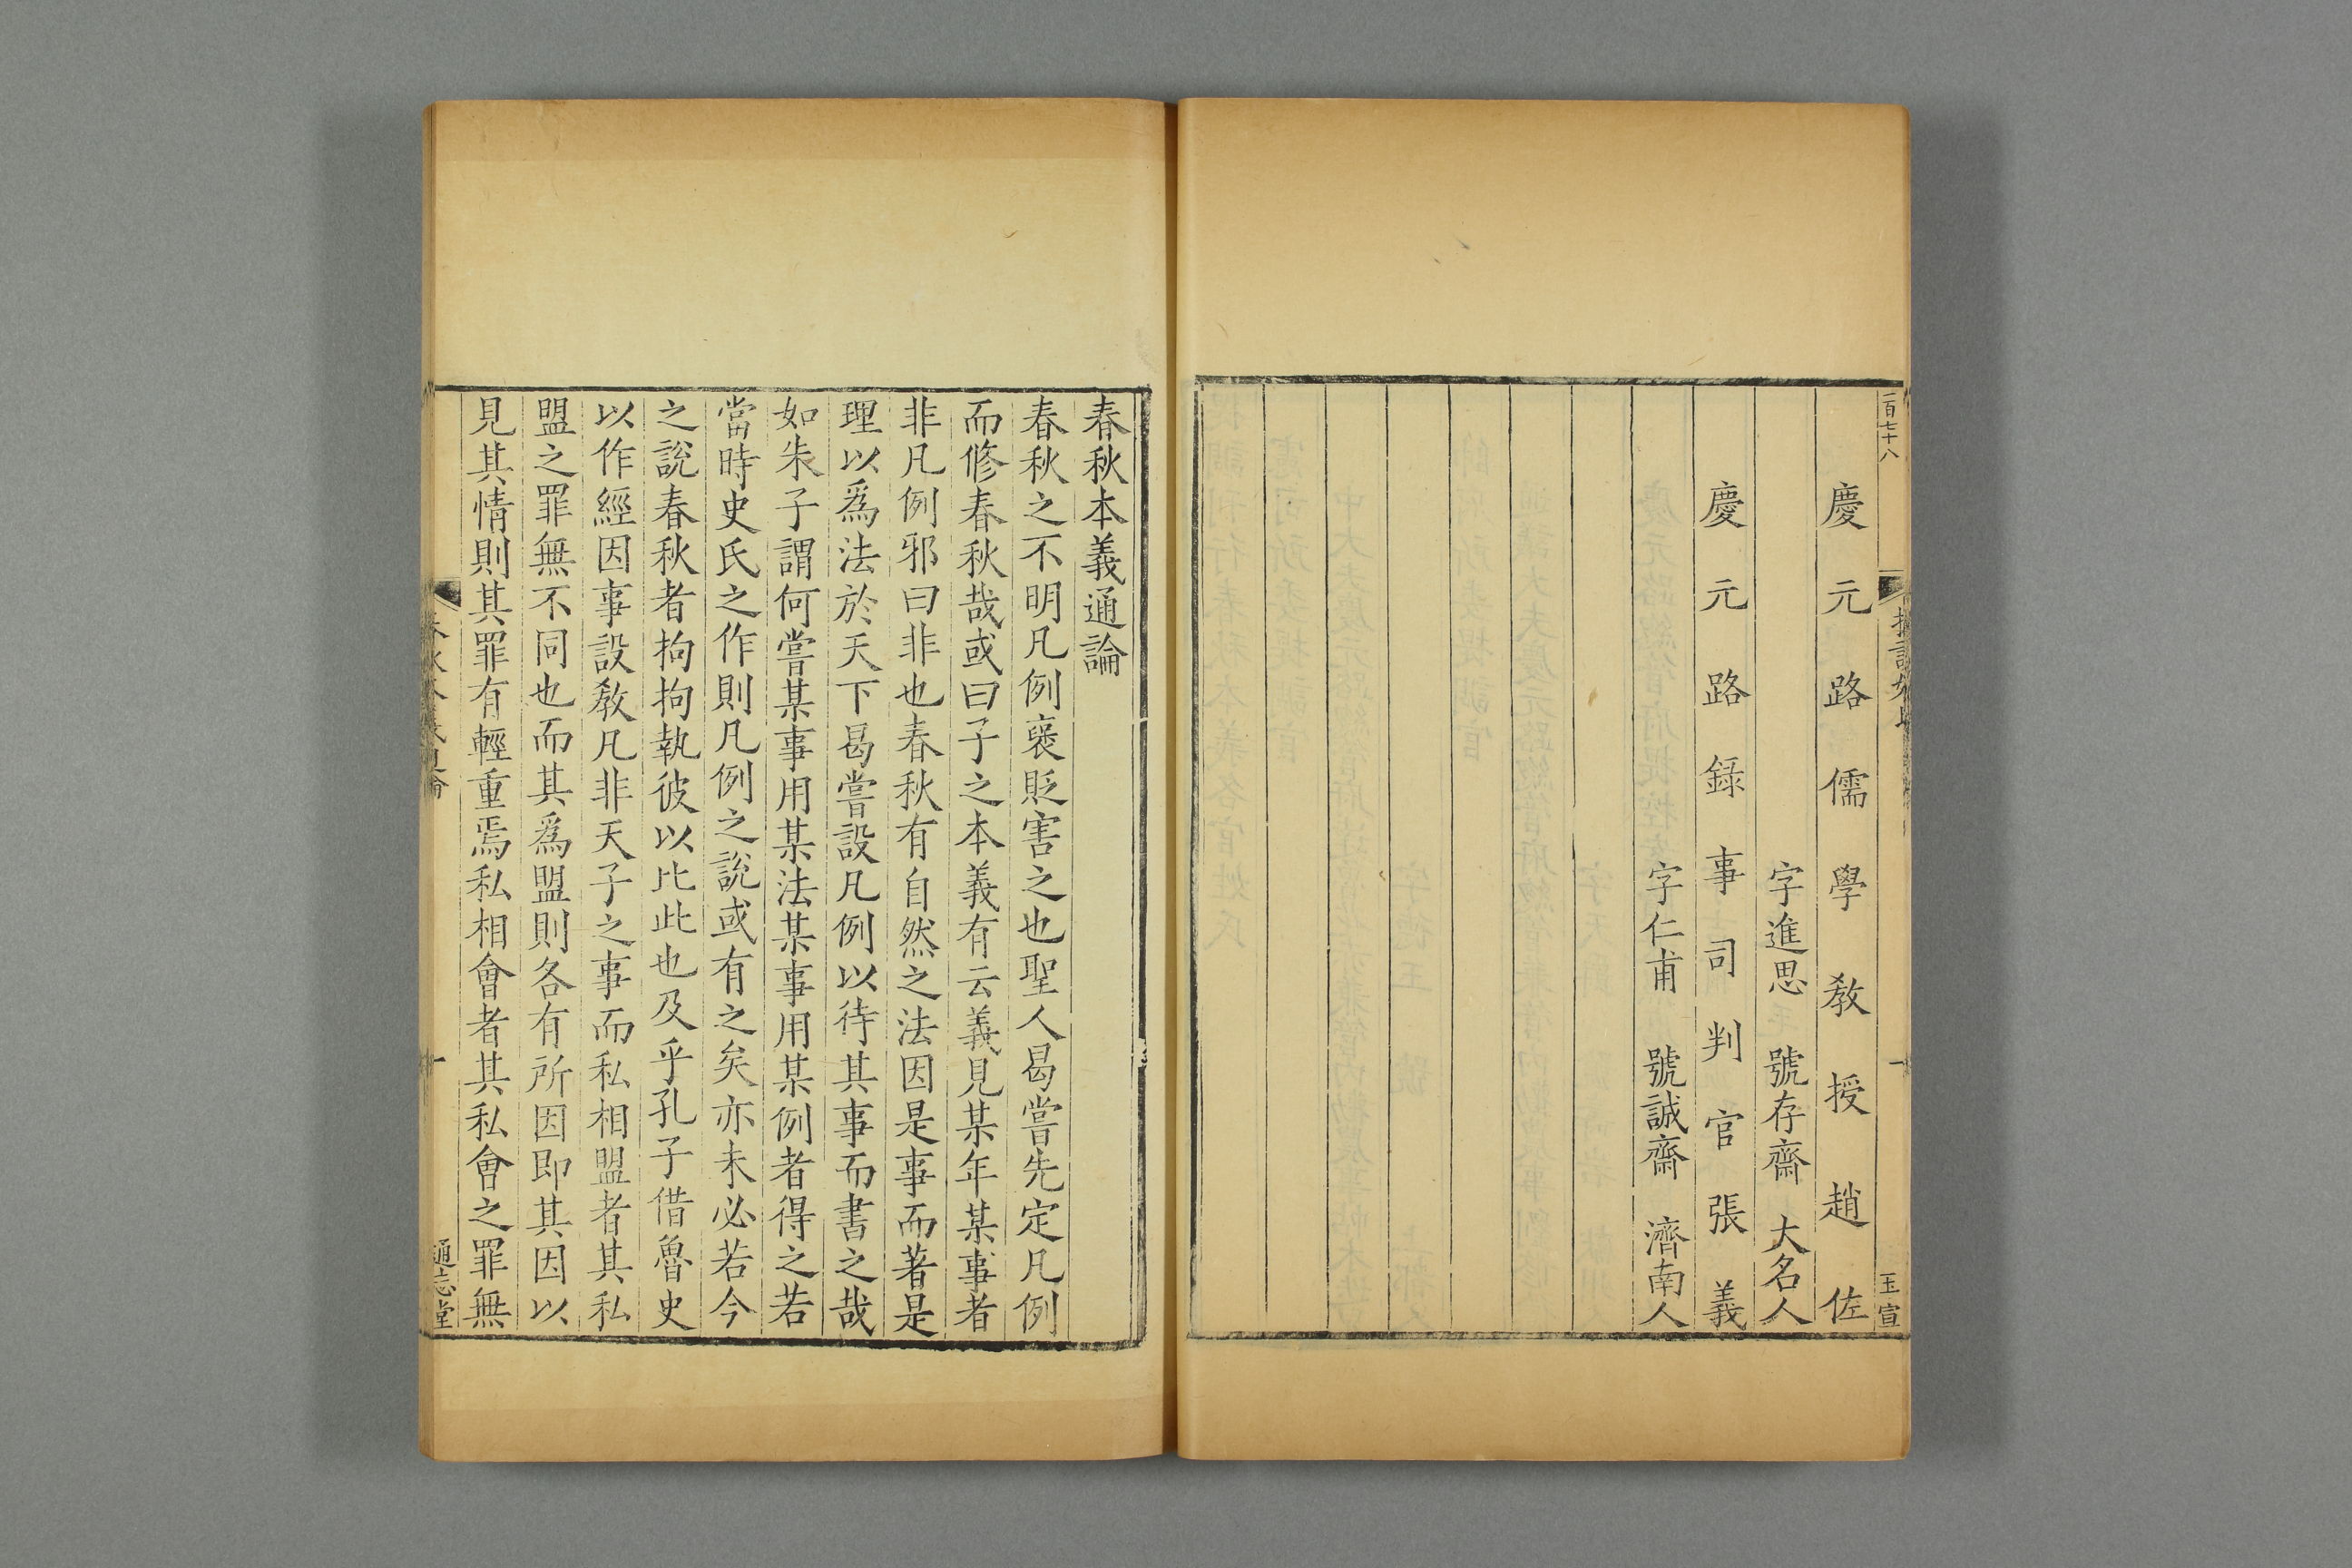 一百七十八
玉宣
慶元路儒學教授趙佐
字進思 號存齋 大名人
慶元路錄事司判官張義
字仁甫 號誠齋 濟南人
春秋本義通論
春秋之不明凡例襃貶害之也聖人曷嘗先定凡例
而修春秋哉或曰子之本義有云義見某年某事者
非凡例邪曰非也春秋有自然之法因是事而著是
理以爲法於天下曷嘗設凡例以待其事而書之哉
如朱子謂何嘗某事用某法某事用某例者得之若
當時史氏之作則凡例之說或有之矣亦未必若今
之說春秋者拘拘執彼以比此也及乎孔子借魯史
以作經因事設教凡非天子之事而私相盟者其私
盟之罪無不同也而其爲盟則各有所因即其因以
見其情則其罪有輕重焉私相會者其私會之罪無
通志堂